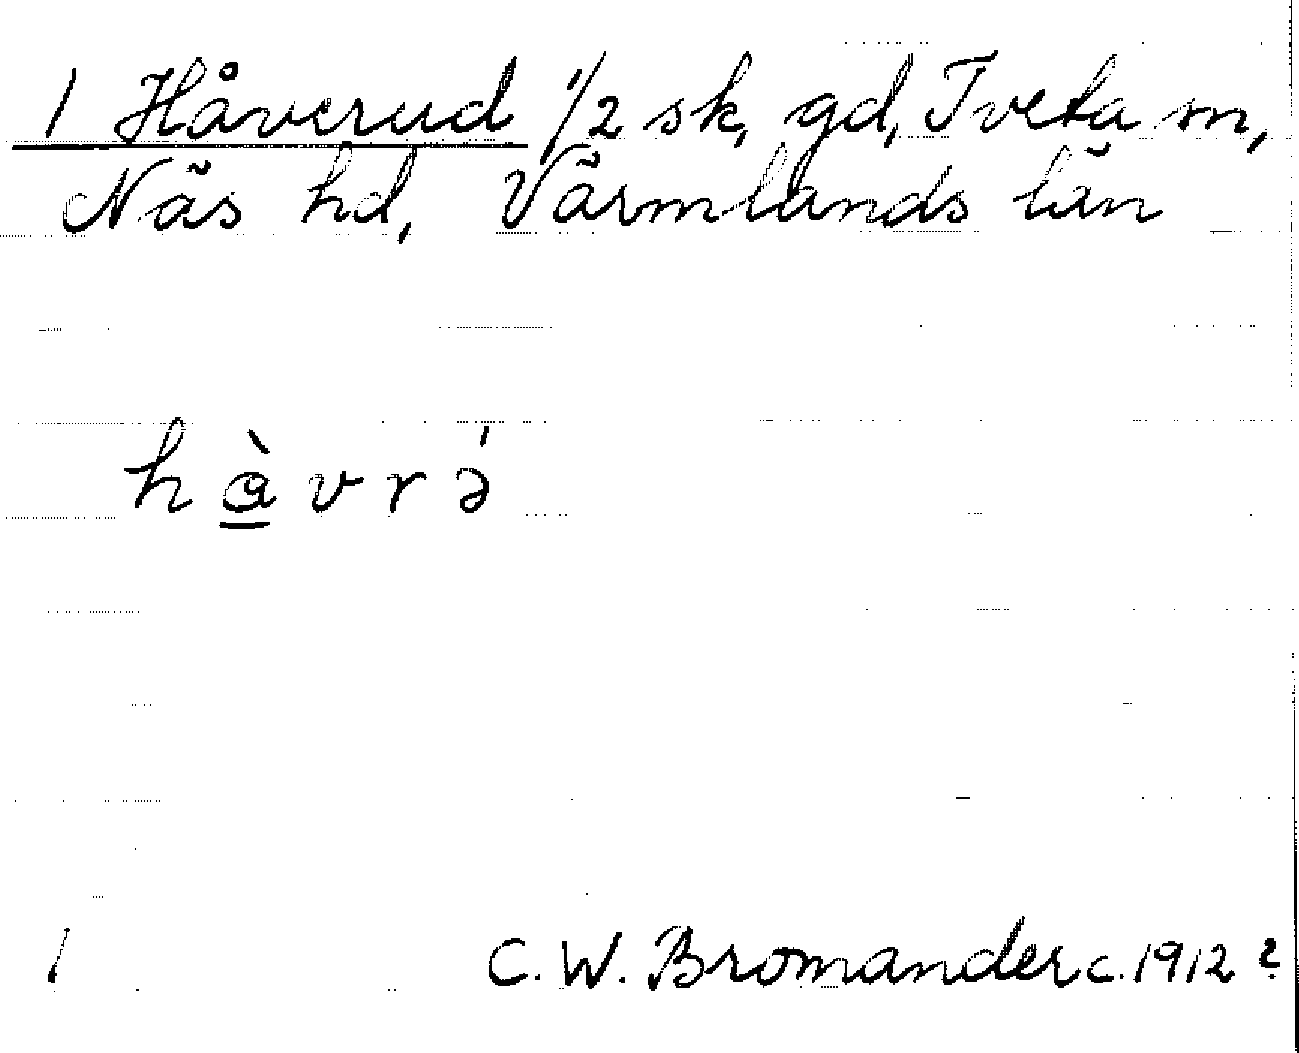 1 Håverud 1/2 sk, gd, Tveta sn,
Näs hd, Värmlands län
h à v r ə́
1 C. W. Bromander c. 1912 ?